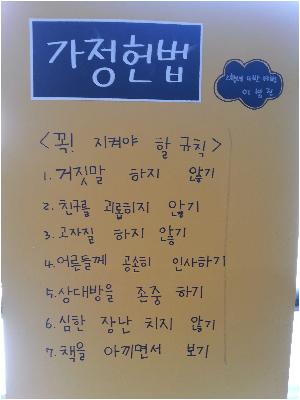 가정헌법
이범진
<꼭! 지켜야 할 규칙>
1. 거짓말 하지 않기
2. 친구를 괴롭히지 않기
3. 고자질 하지 않기
4. 어른들께 공손히 인사하기
5. 상대방을 존중 하기
6. 심한 장난 치지 않기
7. 책을 아끼면서 보기